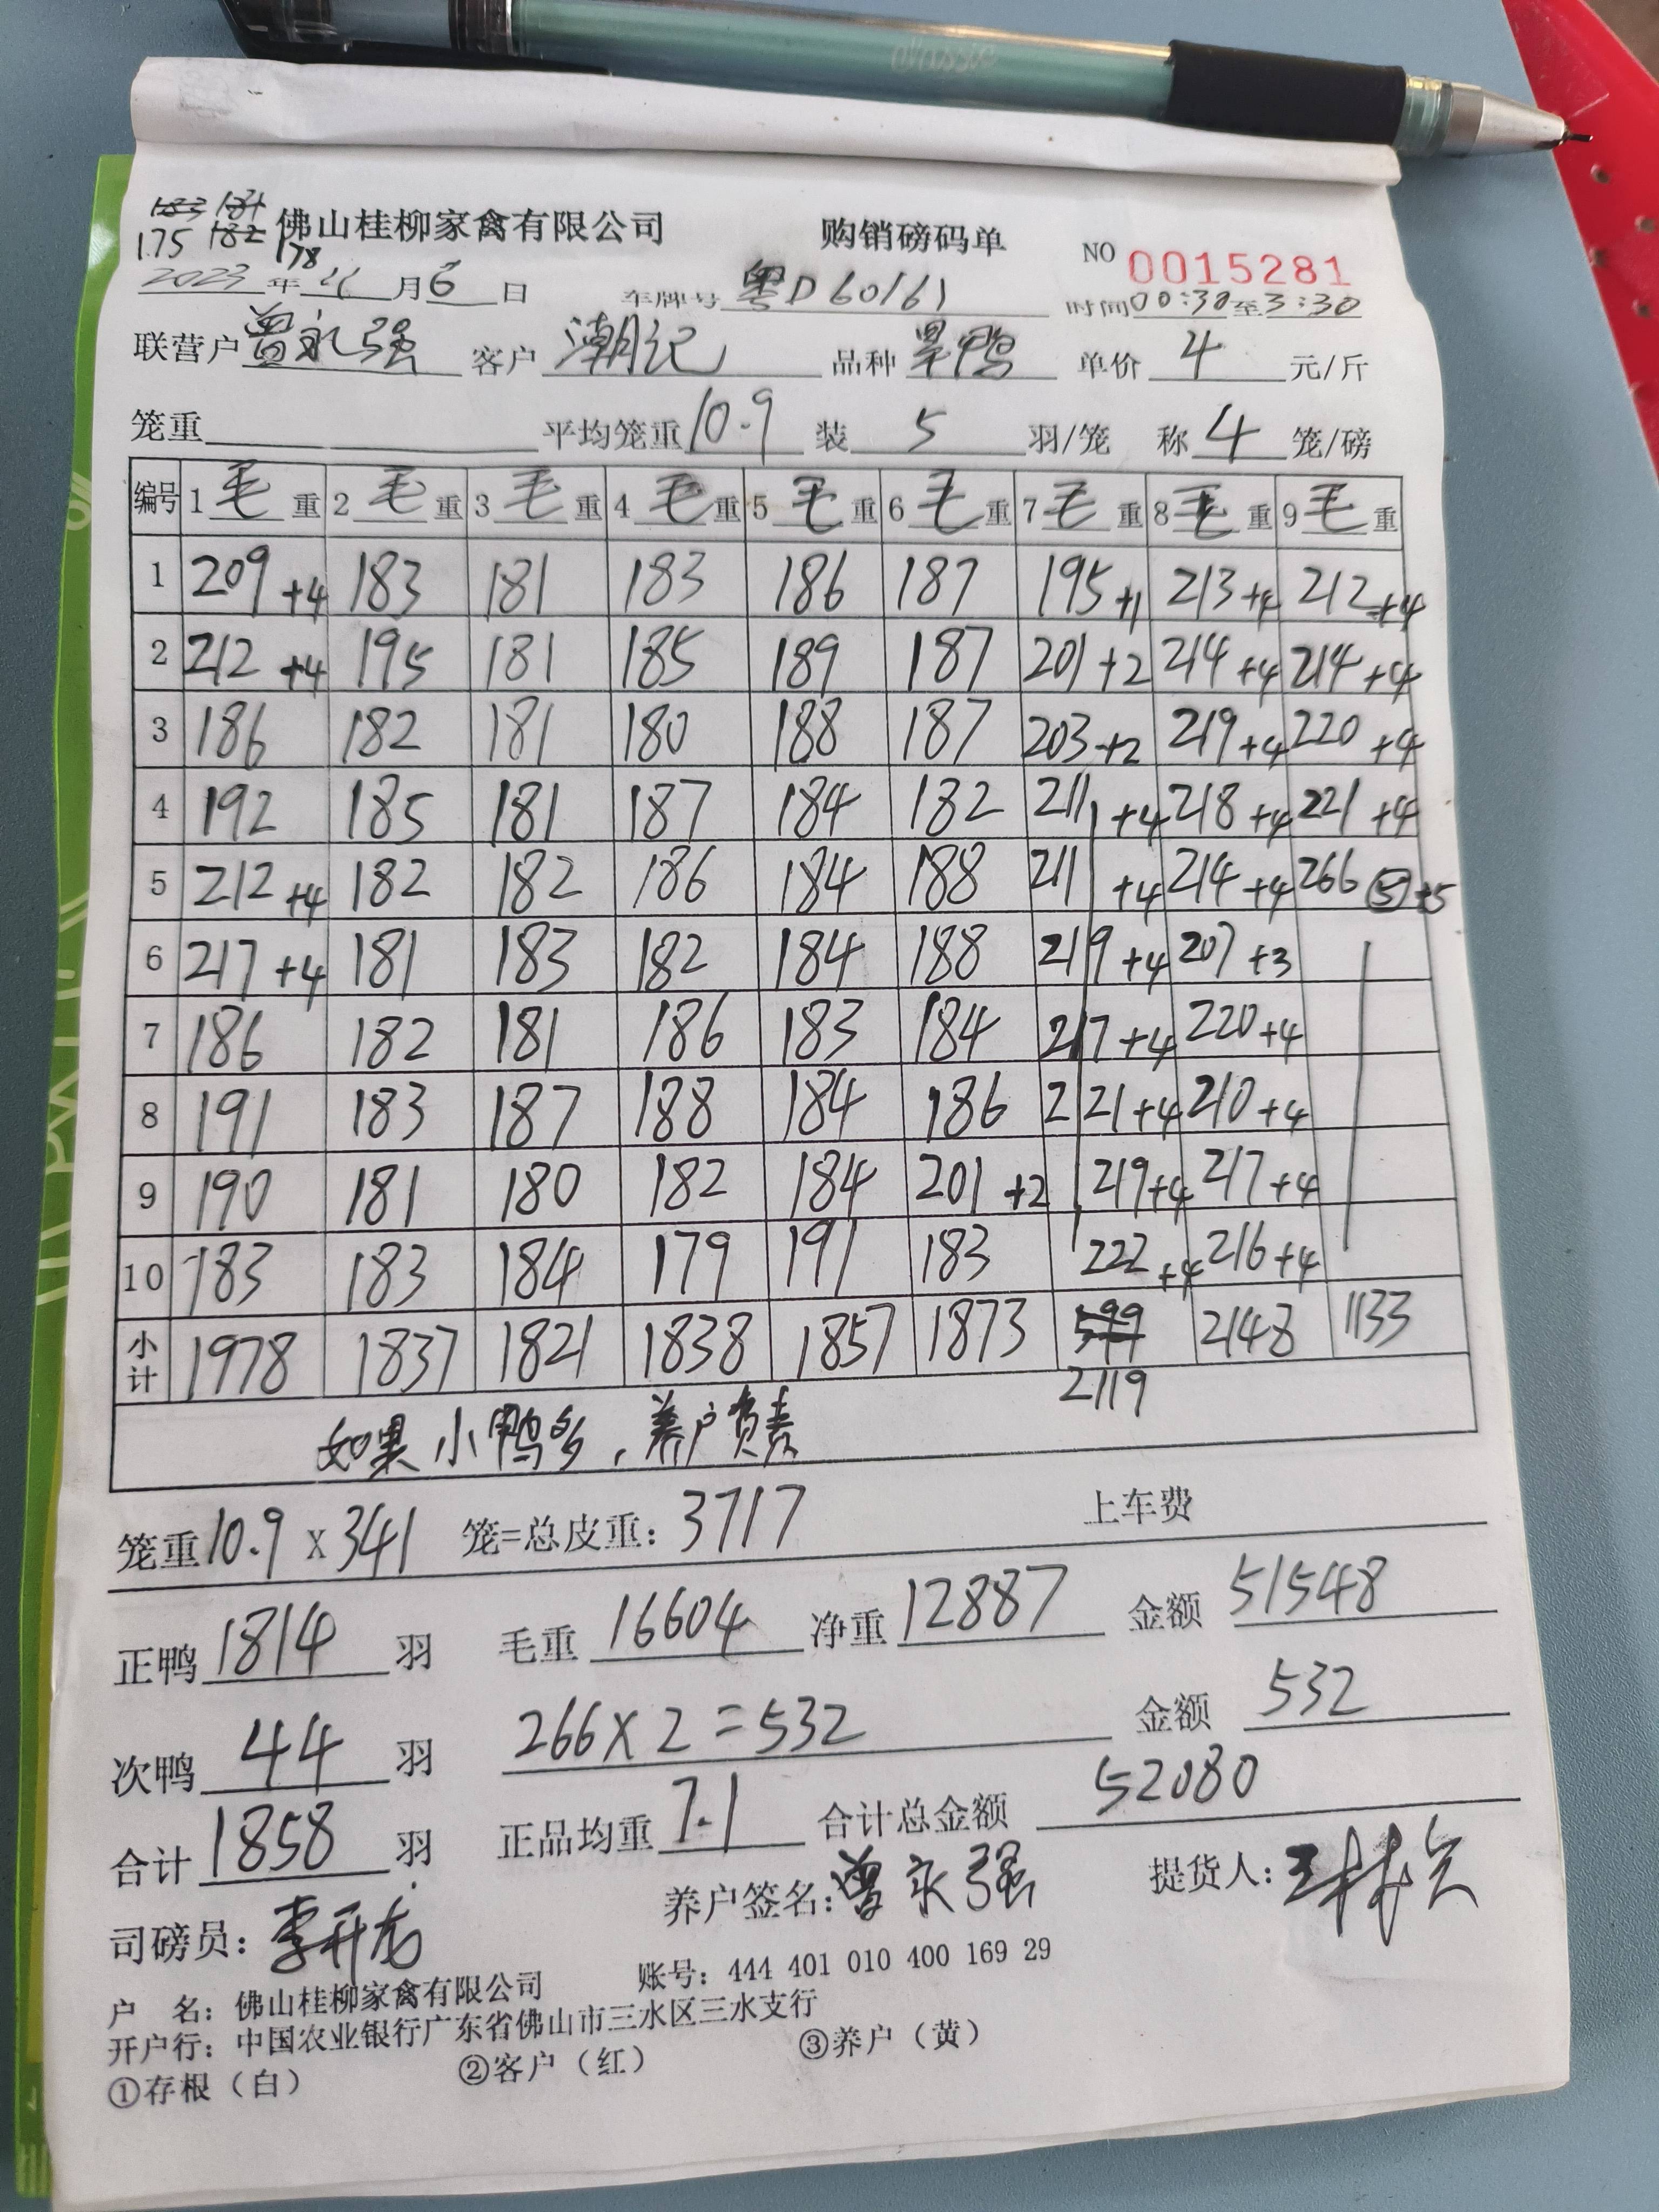 183 181
175 182 178
佛山桂柳家禽有限公司 购销磅码单 NO 0015281
2023年11月6日 车牌号粤D60161 时间00:30至3:30
联营户曾永强 客户潮记 品种旱鸭 单价4元/斤
笼重 平均笼重10.9 装5羽/笼 称4笼/磅
编号 1毛重 2毛重 3毛重 4毛重 5毛重 6毛重 7毛重 8毛重 9毛重
1 209+4 183 181 183 186 187 195+1 213+4 212+4
2 212+4 195 181 185 189 187 201+2 214+4 214+4
3 186 182 181 180 188 187 203+2 219+4 220+4
4 192 185 181 187 184 182 211+4 218+4 221+4
5 212+4 182 182 186 184 188 211+4 214+4 266⑤+5
6 217+4 181 183 182 184 188 219+4 207+3
7 186 182 181 186 183 184 217+4 220+4
8 191 183 187 188 184 186 221+4 210+4
9 190 181 180 182 184 201+2 219+4 217+4
10 183 183 184 179 191 183 222+4 216+4
小计 1978 1837 1821 1838 1857 1873 599 2148 1133
2119
如果小鸭多,养户负责
笼重10.9×341 笼=总皮重:3717 上车费
正鸭1814羽 毛重16604 净重12887 金额51548
次鸭44羽 266×2=532 金额532
合计1858羽 正品均重7.1 合计总金额52080
司磅员:李开龙 养户签名:曾永强 提货人:
户 名:佛山桂柳家禽有限公司 账号:444 401 010 400 169 29
开户行:中国农业银行广东省佛山市三水区三水支行
①存根(白) ②客户(红) ③养户(黄)